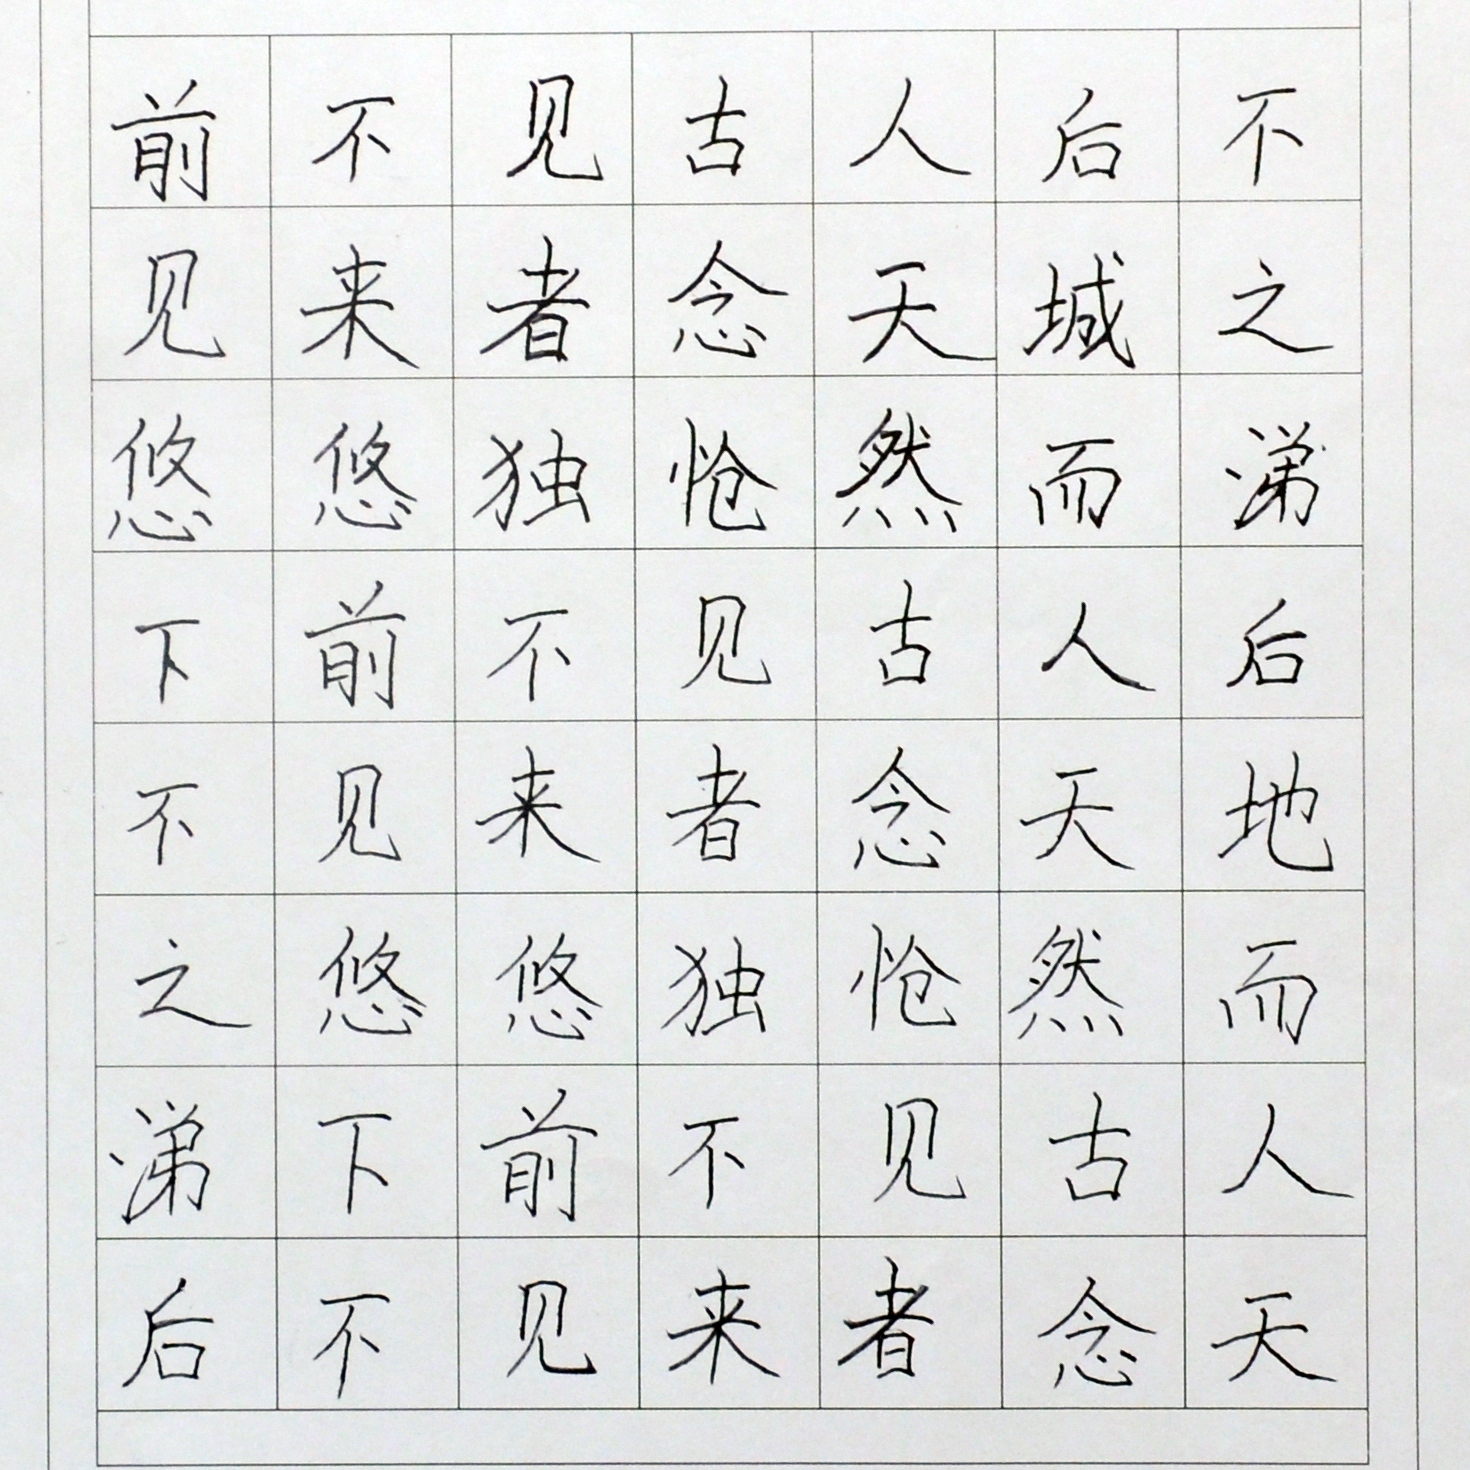 前不见古人后不
见来者念天城之
悠悠独怆然而涕
下前不见古人后
不见来者念天地
之悠悠独怆然而
涕下前不见古人
后不见来者念天